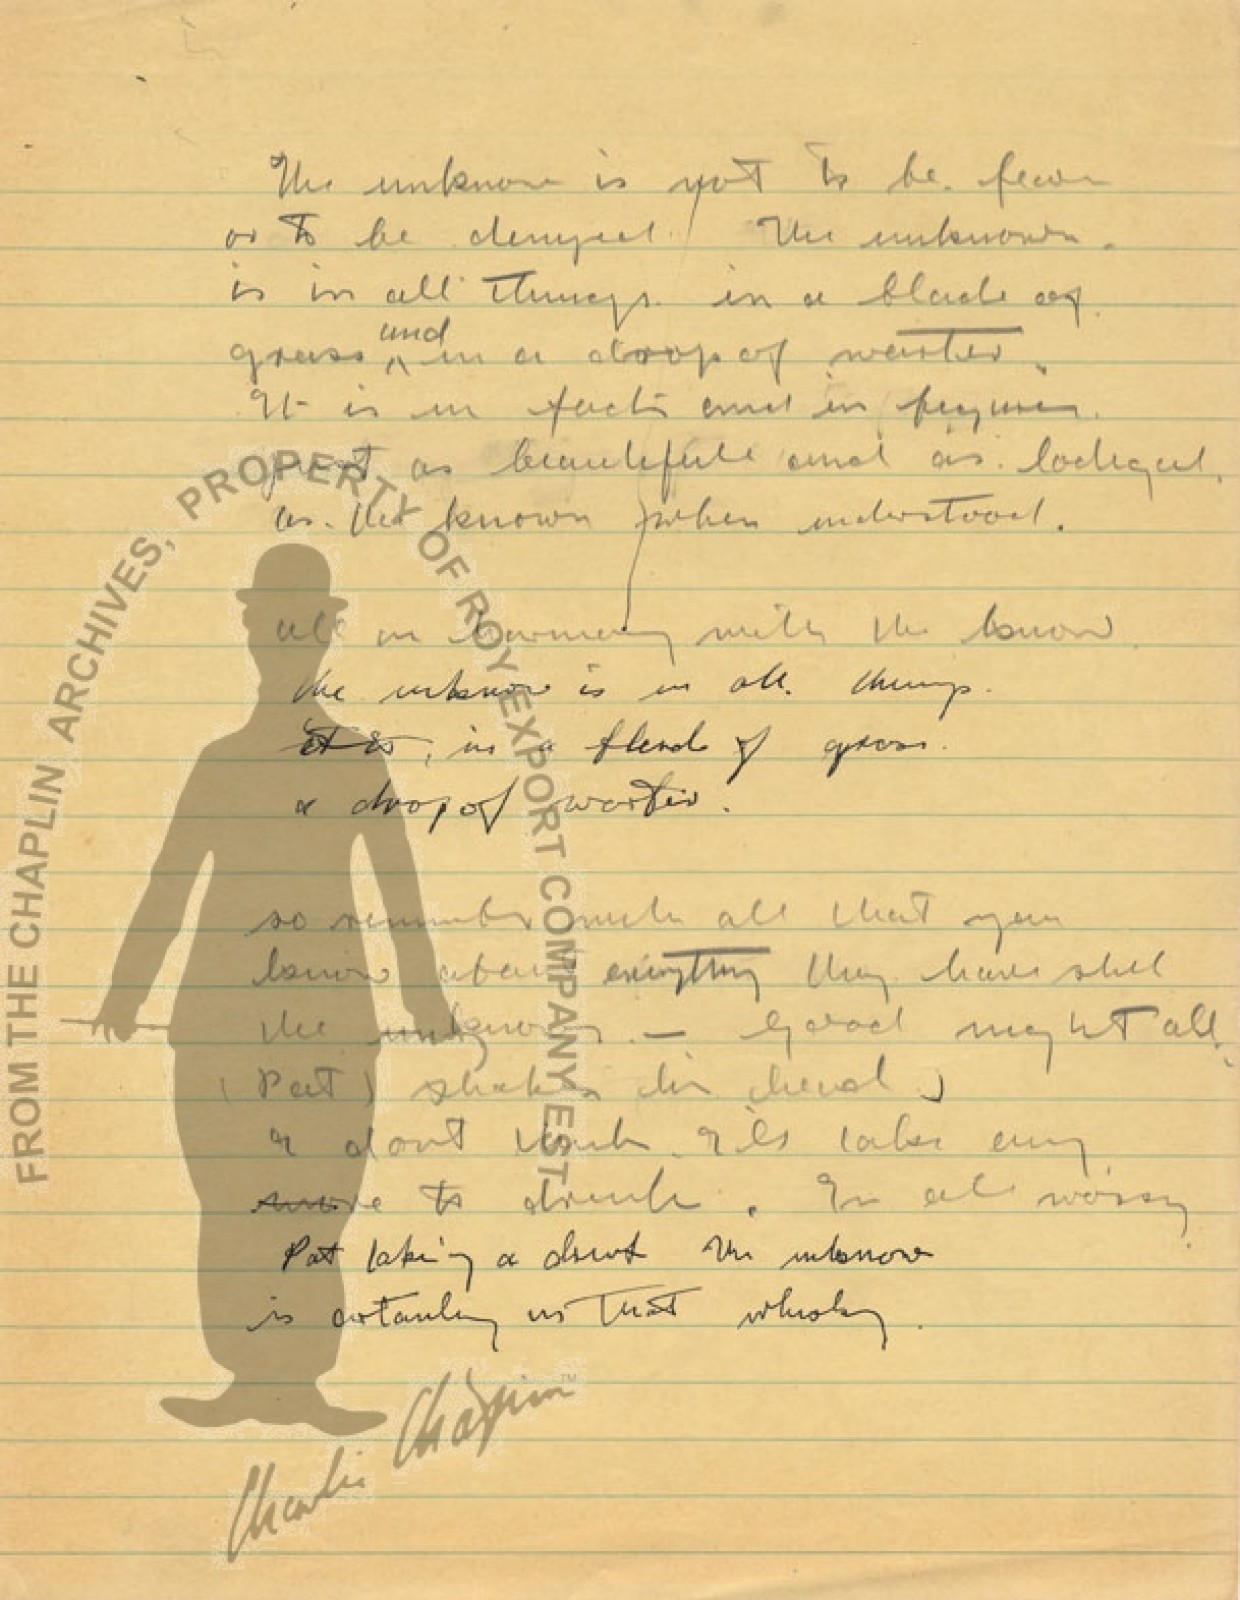 The unknow is not to be fear
or to be denyed. The unknown.
is in all things. in a blade of
grass and in a drop of warter.
It is in facts and in
just as beautiful and as logical.
as the known when understood.
all in harmony with the know
the unknow is in all things.
it is, in a blend of grass.
a drop of warter.
so remember with all that you
know about everything they have still
the unknown. — Good night all.
(Pat) shakes his head)
I dont think I'll take any
more to drink. Im all
Pat taking a drink The unknow
is certainly in that whisky.
FROM THE CHAPLIN ARCHIVES, PROPERTY OF ROY EXPORT COMPANY EST
Charlie Chaplin™